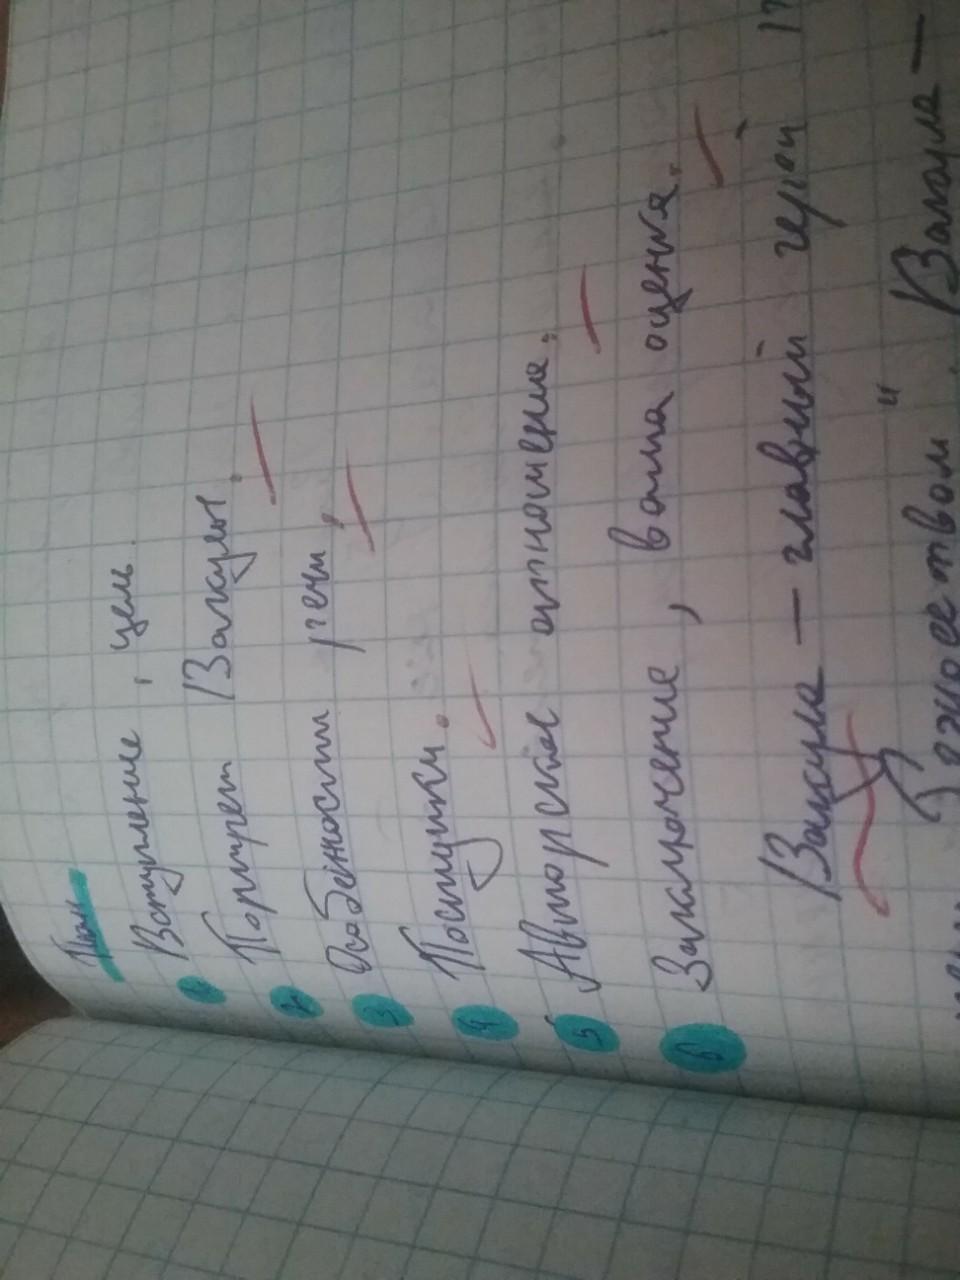 План
1 Вступление, цель.
2 Портрет Вакулы.
3 Особенности речи.
4 Поступки.
5 Авторское отношение.
6 Заключение, ваша оценка.
Вакула — главный герой
Вакула —